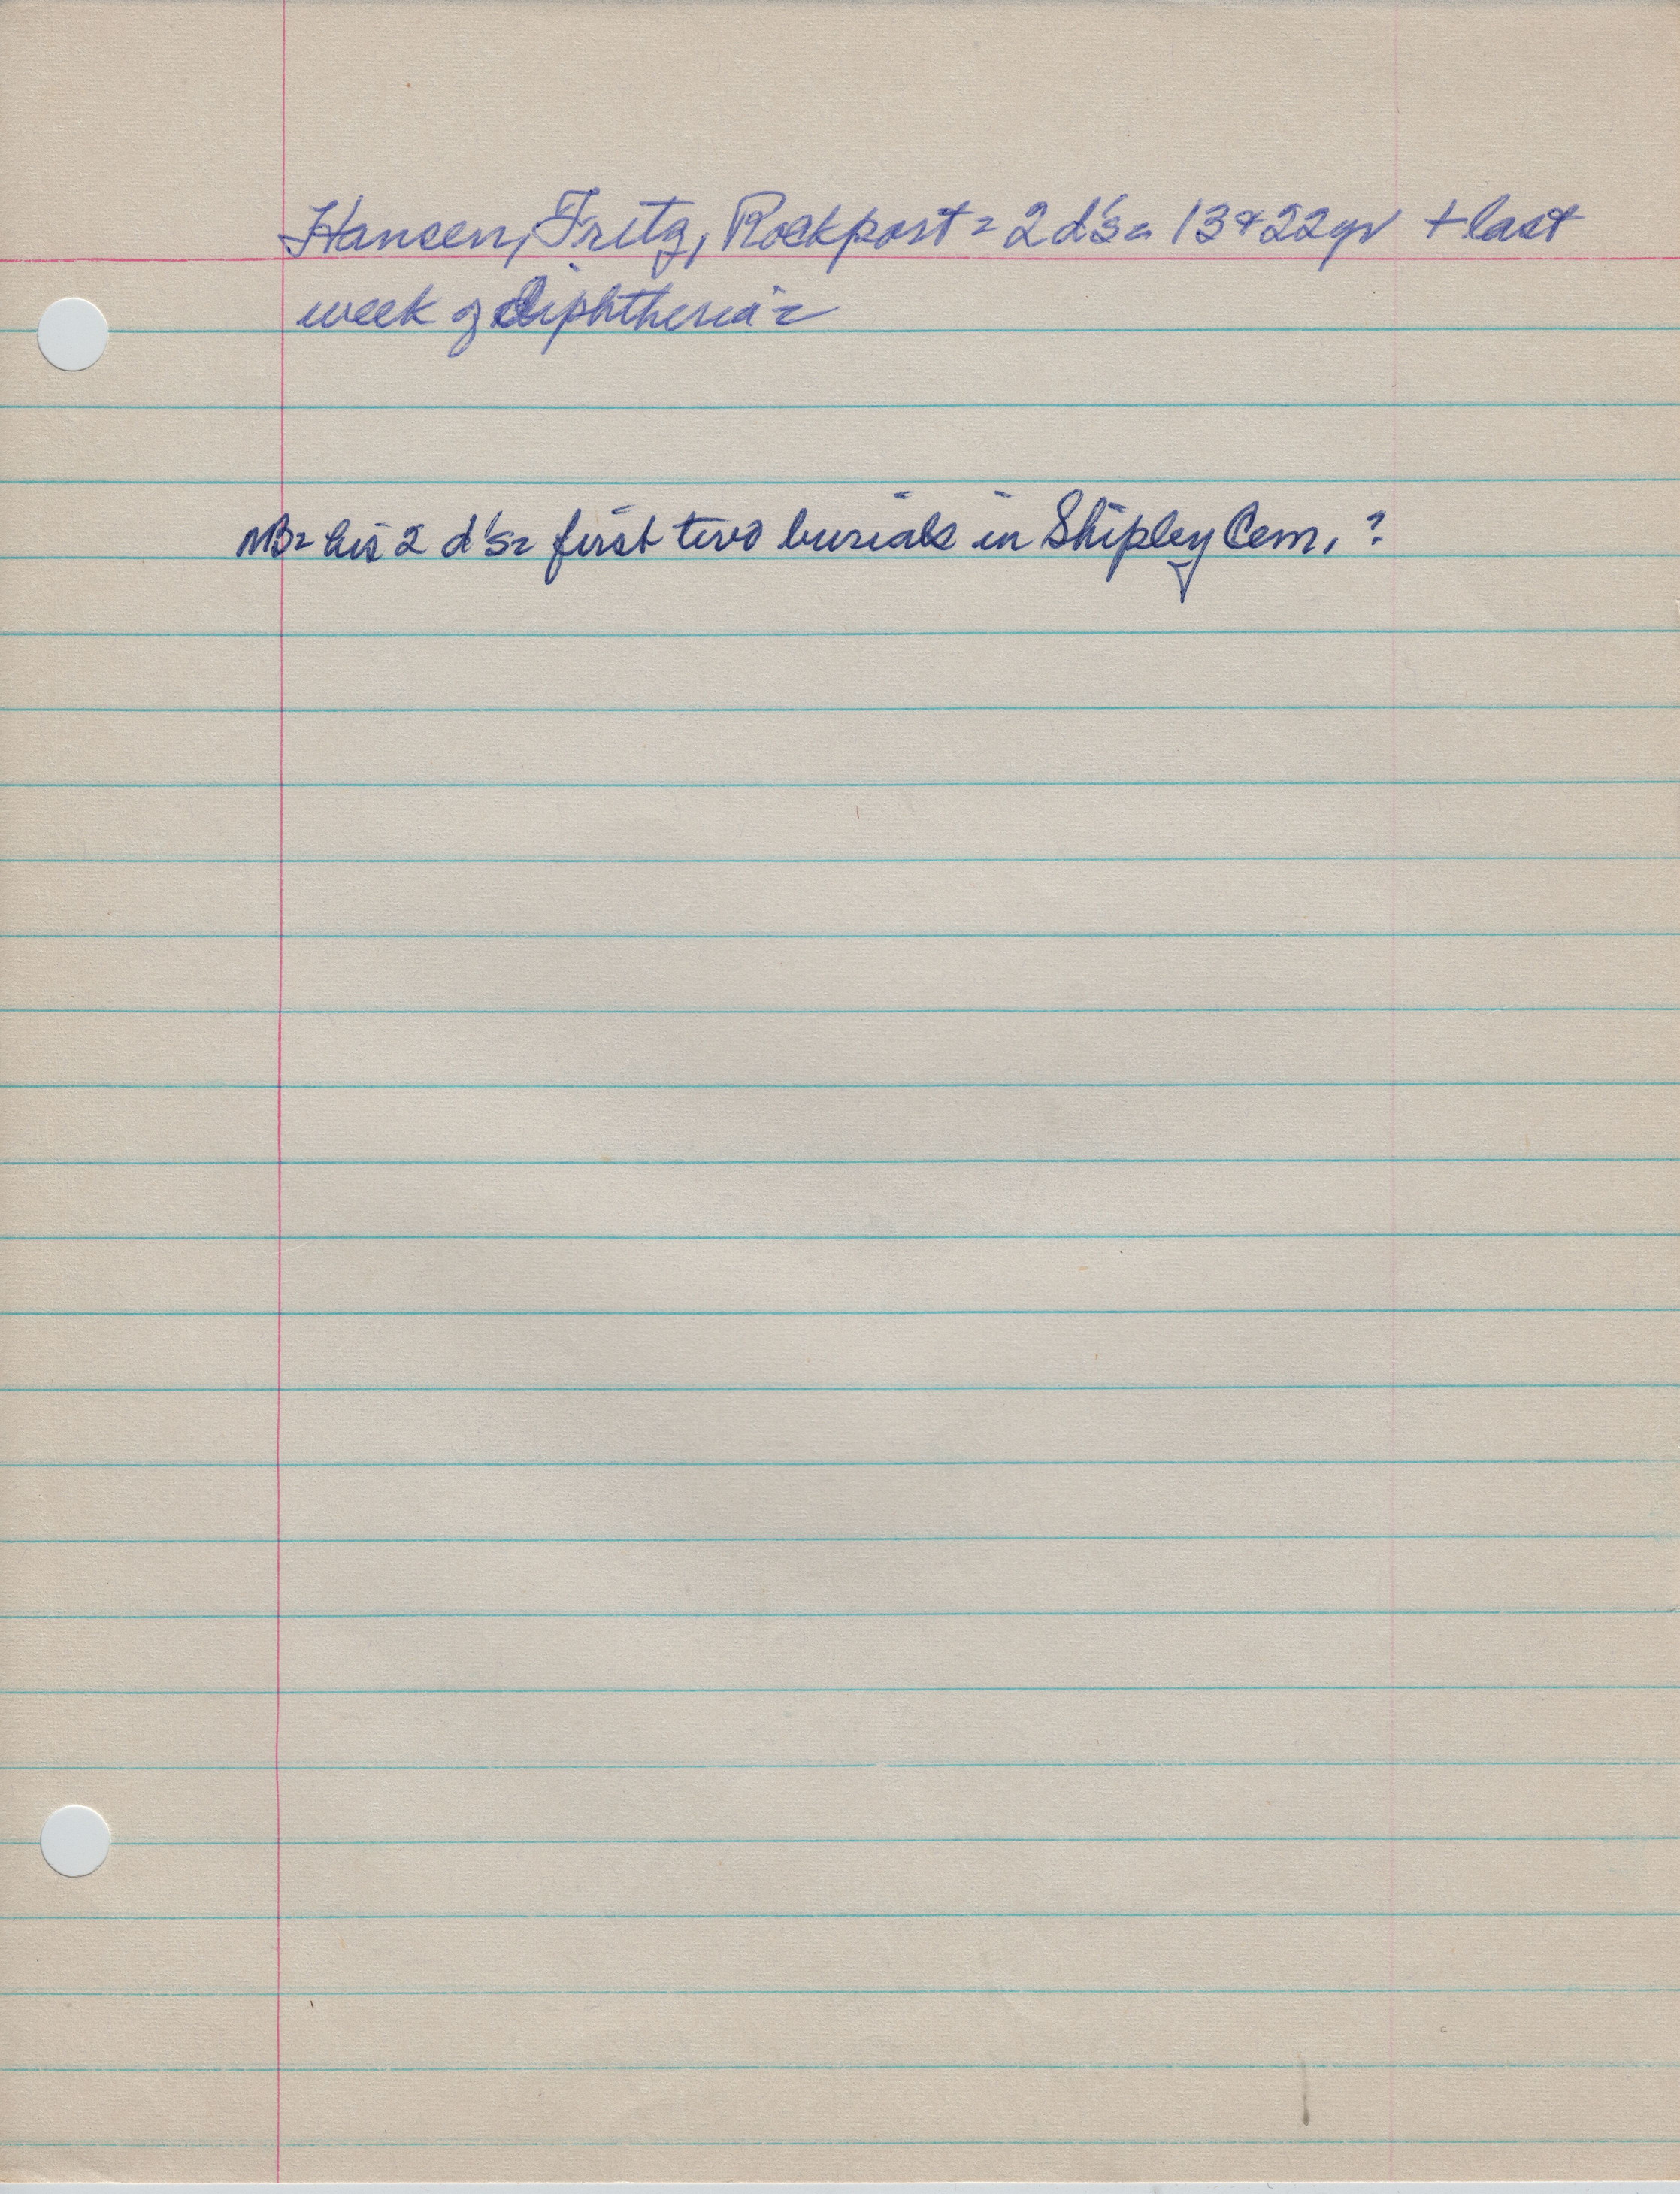 Hansen, Fritz, Rockport = 2 d's = 13 & 22 yr + last
week of diphtheria =
NB = his 2 d's = first two burials in Shipley Cem. ?